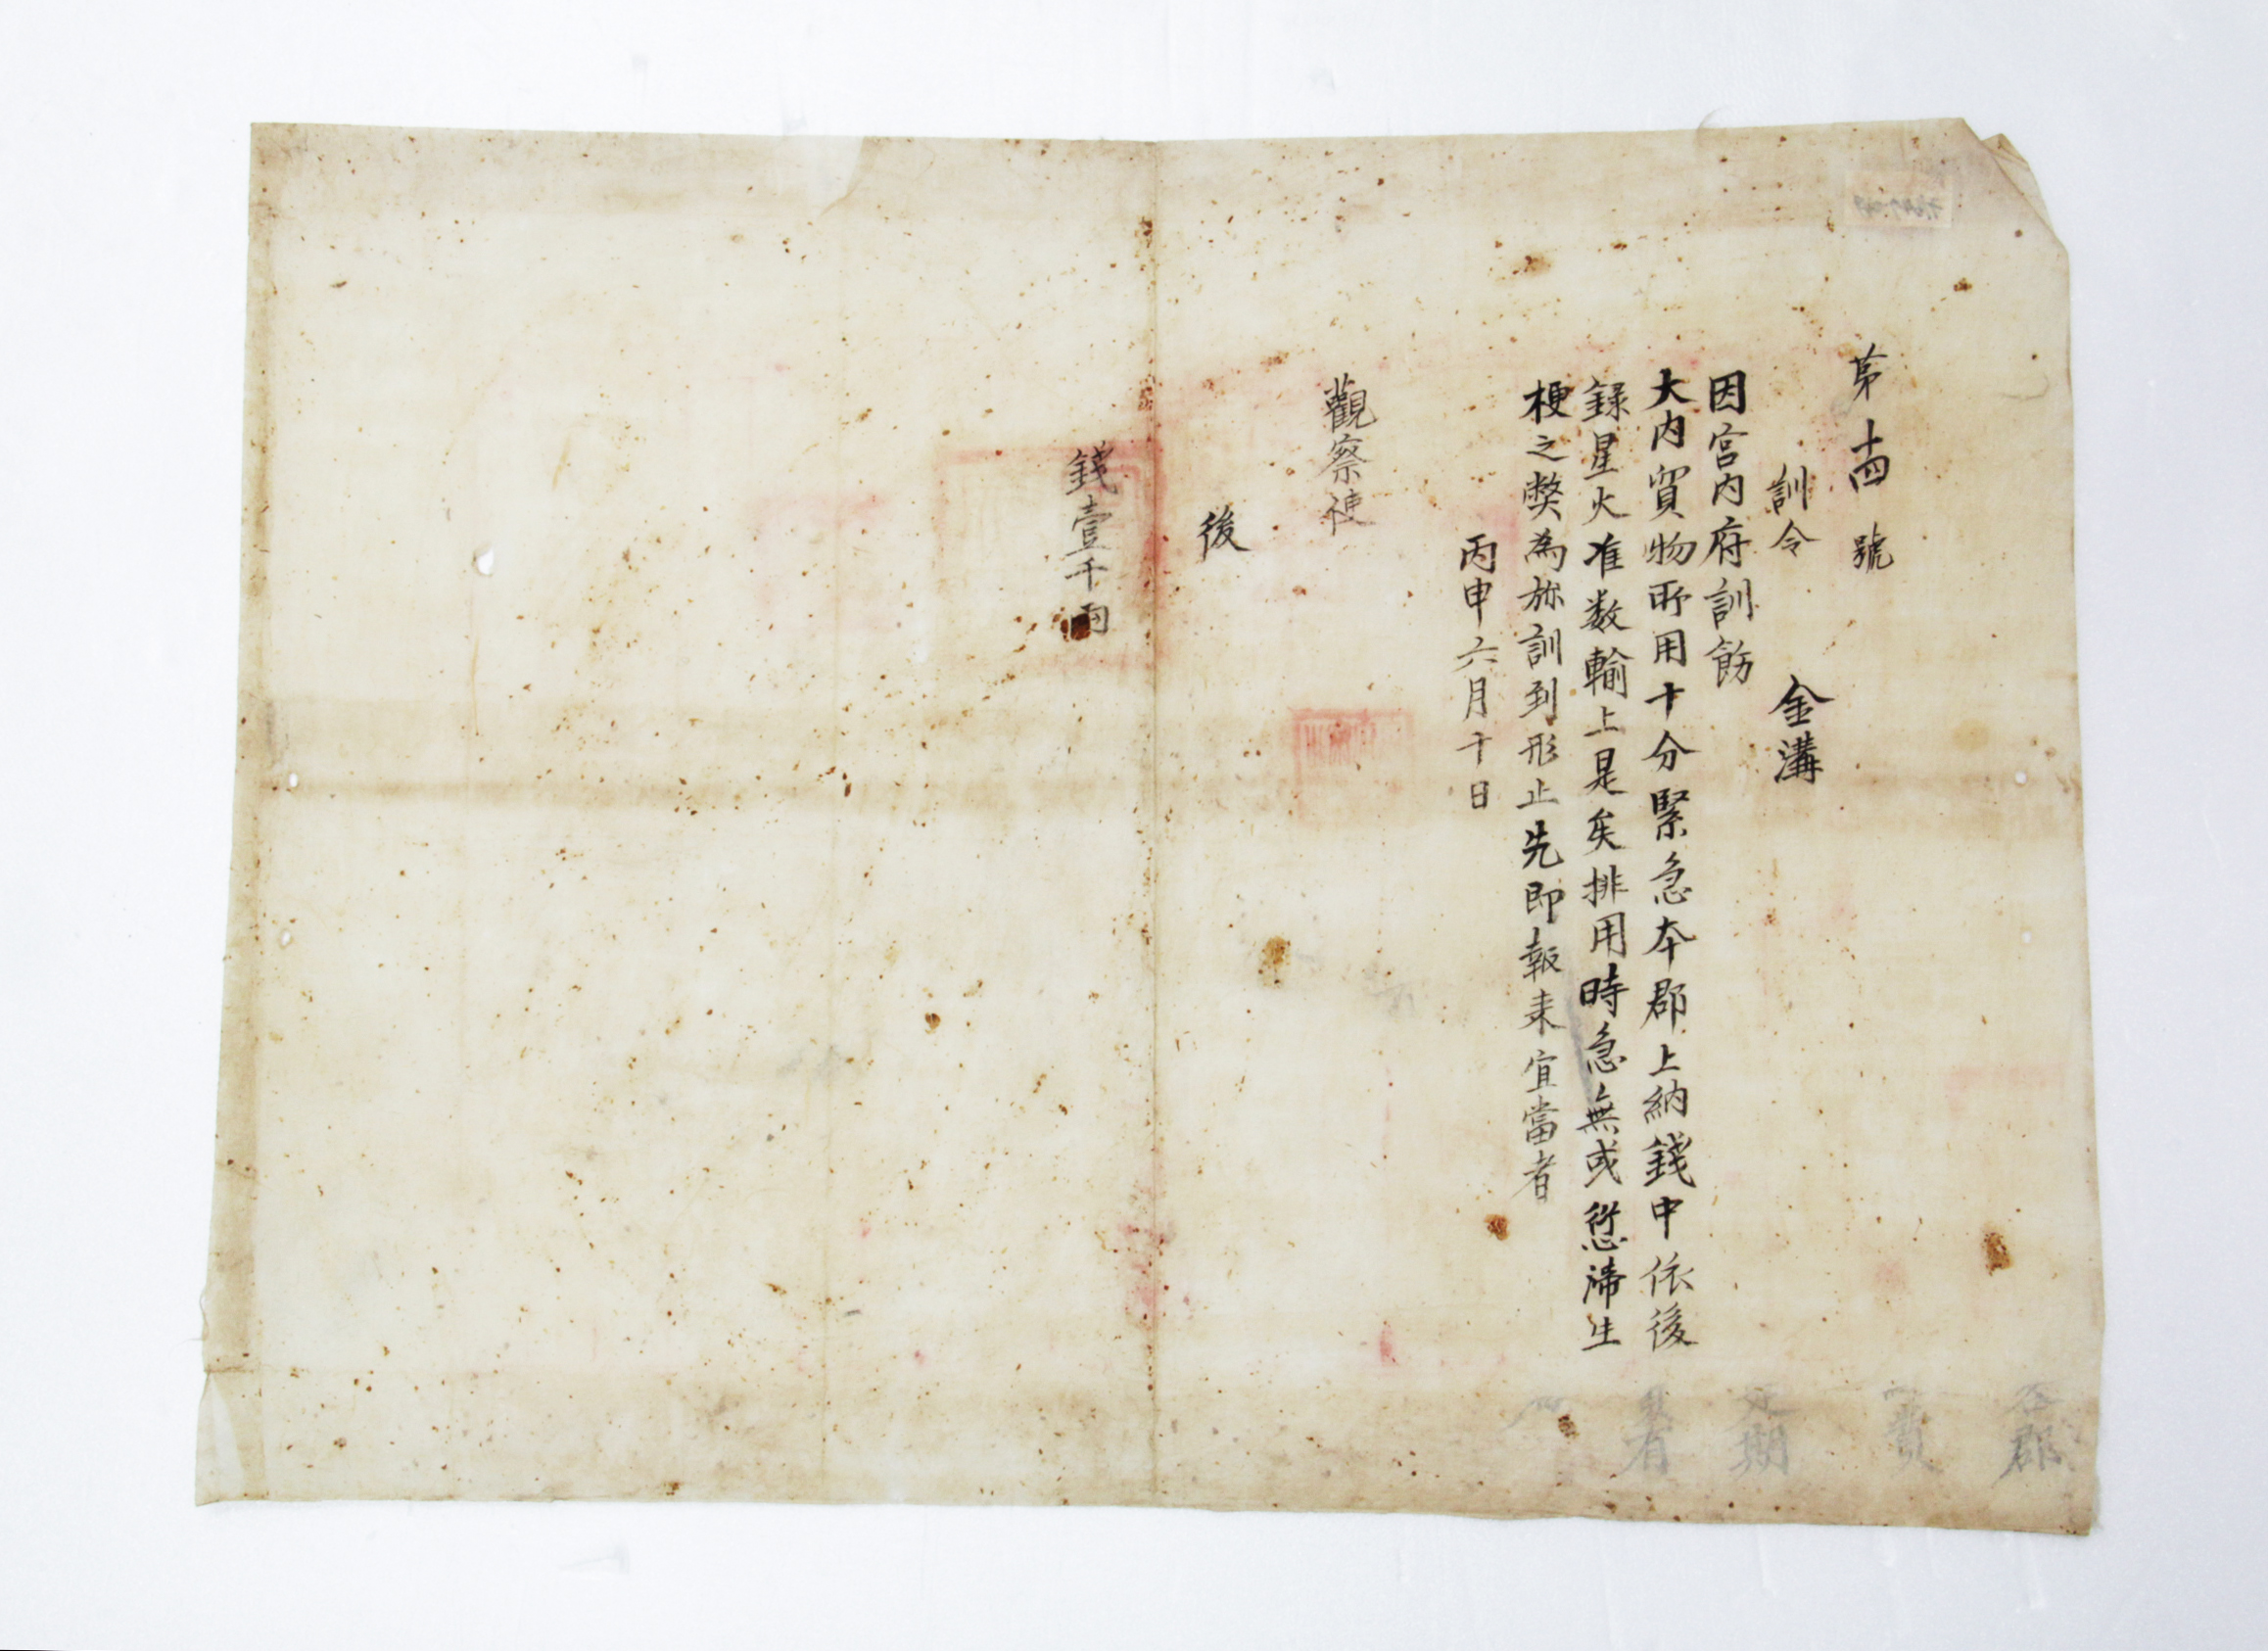 第十四號
訓令 金溝
因宮內府訓飭
大內貿物所用十分緊急本郡上納錢中依後
録星火准数輸上是矣排用時急無或愆滯生
梗之獘為旀訓到形止先即報来宜當者
丙申六月十日
觀察使
後
錢壹千兩
本郡
期
有